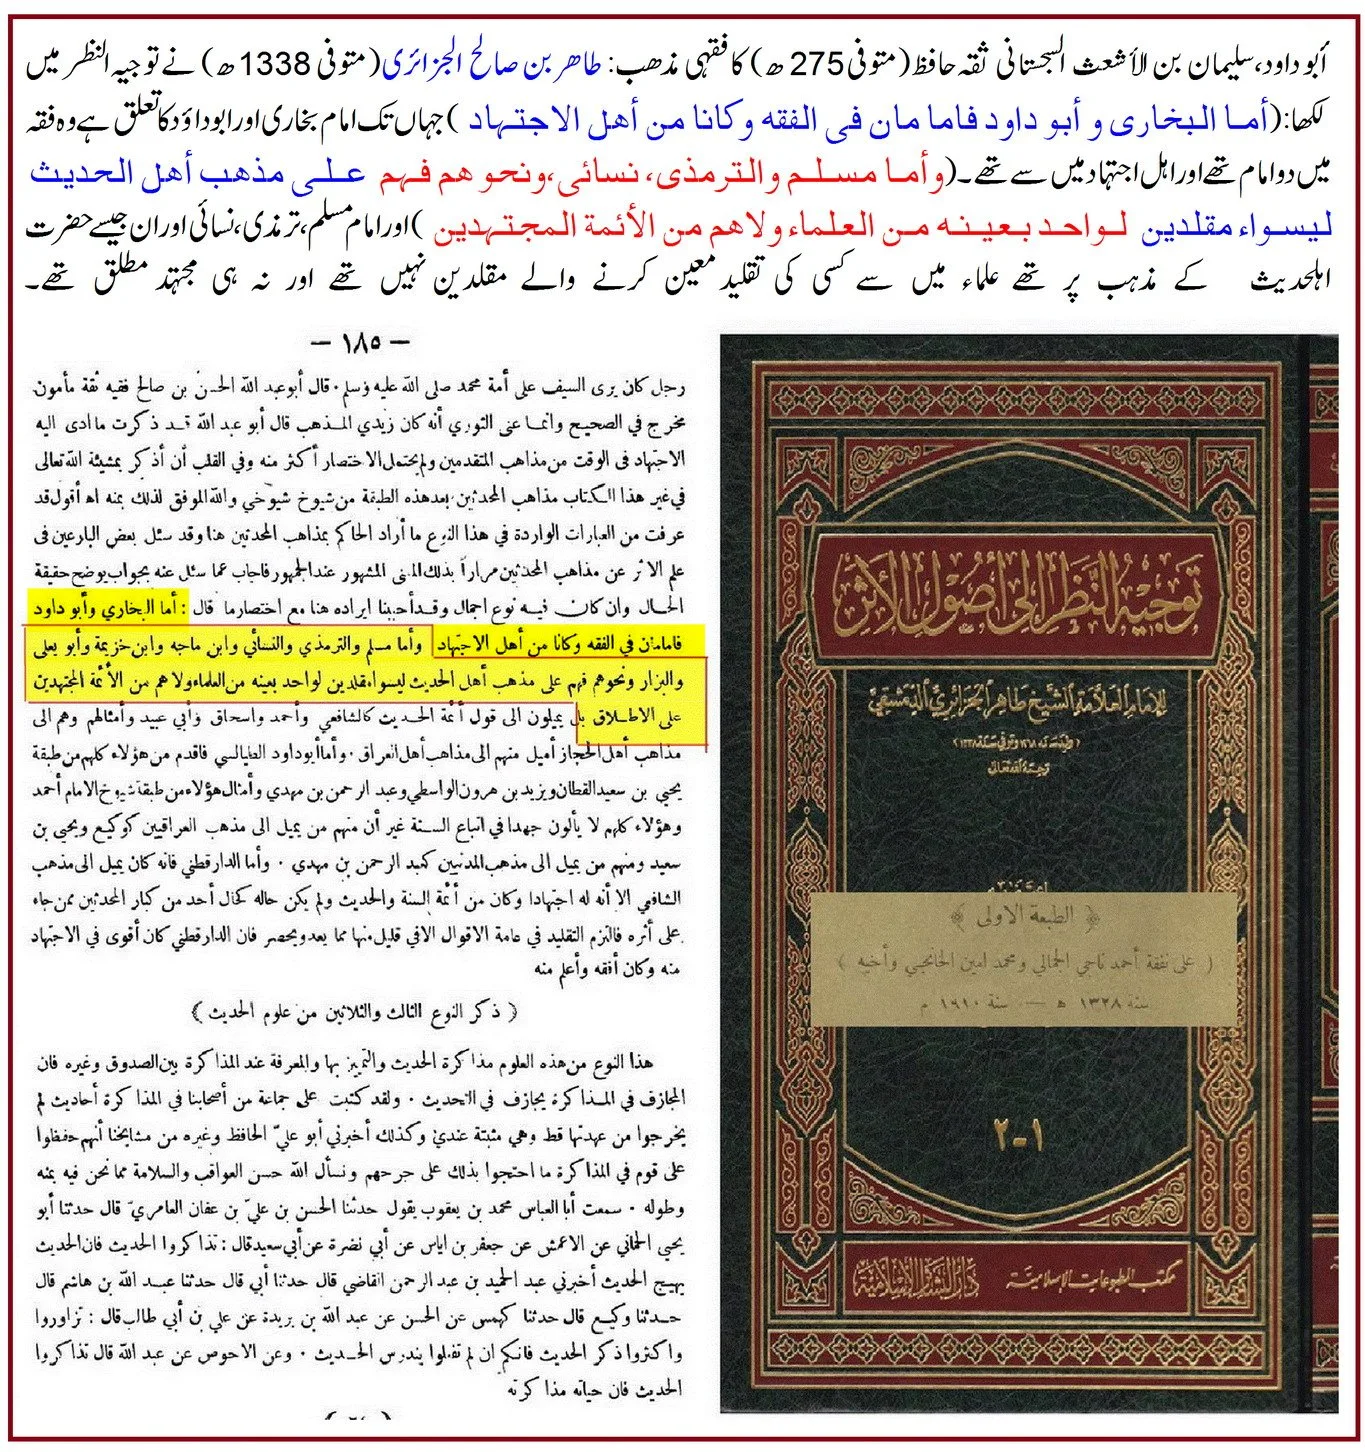 أبو داود، سلیمان بن الأشعث السجستانی ثقہ حافظ (متوفی 275 ھ) کا فقہی مذھب: طاھر بن صالح الجزائری (متوفی 1338 ھ) نے توجیہ النظر میں
لکھا: (أما البخاری و أبو داود فاما مان فی الفقه وکانا من أهل الاجتهاد) جہاں تک امام بخاری اور ابو داؤد کا تعلق ہے وہ فقہ
میں دو امام تھے اور اہل اجتہاد میں سے تھے۔ (وأما مسلم والترمذی، نسائی، ونحو هم فهم علی مذهب أهل الحدیث
لیسواء مقلدین لواحد بعینه من العلماء ولاهم من الأئمة المجتهدین) اور امام مسلم، ترمذی، نسائی اور ان جیسے حضرت
اہلحدیث کے مذہب پر تھے علماء میں سے کسی کی تقلید معین کرنے والے مقلدین نہیں تھے اور نہ ہی مجتہد مطلق تھے۔
— ١٨٥ —
رجل كان يرى السيف على أمة محمد صلى الله عليه وسلم • قال أبو عبد الله الحسن بن صالح فقيه ثقة مأمون
مخرج في الصحيح وانما عنى الثوري أنه كان زيدي المذهب قال أبو عبد الله قد ذكرت ما ادى اليه
الاجتهاد فى الوقت من مذاهب المتقدمين ولم يحتمل الاختصار أكثر منه وفي القلب أن أذكر بمشيئة الله تعالى
في غير هذا الكتاب مذاهب المحدثين بعد هذه الطبقة من شيوخ شيوخي والله الموفق لذلك بمنه اه أقول قد
عرفت من العبارات الواردة في هذا النوع ما أراد الحاكم بمذاهب المحدثين هنا وقد سئل بعض البارعين فى
علم الاثر عن مذاهب المحدثين مراراً بذلك المعنى المشهور عند الجمهور فاجاب عما سئل عنه بجواب يوضح حقيقة
الحال وان كان فيه نوع اجمال وقد أحببنا ايراده هنا مع اختصار ما قال : أما البخاري وأبو داود
فامامان في الفقه وكانا من أهل الاجتهاد وأما مسلم والترمذي والنسائي وابن ماجه وابن خزيمة وأبو يعلى
والبزار ونحوهم فهم على مذهب أهل الحديث ليسوا مقلدين لواحد بعينه من العلماء ولا هم من الأئمة المجتهدين
على الاطلاق بل يميلون الى قول أئمة الحديث كالشافعي وأحمد واسحاق وأبي عبيد وأمثالهم وهم الى
مذاهب أهل الحجاز أميل منهم الى مذاهب أهل العراق • وأما أبو داود الطيالسي فاقدم من هؤلاء كلهم من طبقة
يحيى بن سعيد القطان ويزيد بن هرون الواسطي وعبد الرحمن بن مهدي وأمثال هؤلاء من طبقة شيوخ الامام أحمد
وهؤلاء كلهم لا يألون جهدا في اتباع السنة غير أن منهم من يميل الى مذهب العراقيين كوكيع ويحيى بن
سعيد ومنهم من يميل الى مذهب المدنيين كعبد الرحمن بن مهدي • وأما الدارقطني فانه كان يميل الى مذهب
الشافعي الا أنه له اجتهادا وكان من أئمة السنة والحديث ولم يكن حاله كحال أحد من كبار المحدثين ممن جاء
على أثره فالتزم التقليد في عامة الاقوال الا في قليل منها مما يعد ويحصر فان الدارقطني كان أقوى في الاجتهاد
منه وكان أفقه وأعلم منه
﴿ ذكر النوع الثالث والثلاثين من علوم الحديث ﴾
هذا النوع من هذه العلوم مذاكرة الحديث والتمييز بها والمعرفة عند المذاكرة بين الصدوق وغيره فان
المجازف في المذاكرة يجازف في التحديث • ولقد كتبت على جماعة من أصحابنا في المذاكرة أحاديث لم
يخرجوا من عهدتها قط وهي مثبتة عندي وكذلك أخبرني أبو علي الحافظ وغيره من مشايخنا أنهم حفظوا
على قوم في المذاكرة ما احتجوا بذلك على جرحهم ونسأل الله حسن العواقب والسلامة مما نحن فيه بمنه
وطوله • سمعت أبا العباس محمد بن يعقوب يقول حدثنا الحسن بن علي بن عفان العامري قال حدثنا أبو
يحيى الحماني عن الاعمش عن جعفر بن اياس عن أبي نضرة عن أبي سعيد قال : تذاكروا الحديث فان الحديث
يهيج الحديث أخبرني عبد الحميد بن عبد الرحمن القاضي قال حدثنا أبي قال حدثنا عبد الله بن هاشم قال
حدثنا وكيع قال حدثنا كهمس عن الحسن عن عبد الله بن بريدة عن علي بن أبي طالب قال : تزاوروا
واكثروا ذكر الحديث فانكم ان لم تفعلوا يندرس الحديث • وعن الاحوص عن عبد الله قال تذاكروا
الحديث فان حياته مذاكرته
توجيه النظر إلى أصول الأثر
للإمام العلامة الشيخ طاهر الجزائري الدمشقي
(ولد سنة ١٢٦٨ وتوفي سنة ١٣٣٨)
رحمه الله تعالى
﴿ الطبعة الاولى ﴾
( على نفقة أحمد ناجي الجمالي ومحمد امين الخانجي وأخيه )
سنه ١٣٢٨ ه — سنة ١٩١٠ م
١-٢
مكتب المطبوعات الإسلامية
دار البشائر الإسلامية